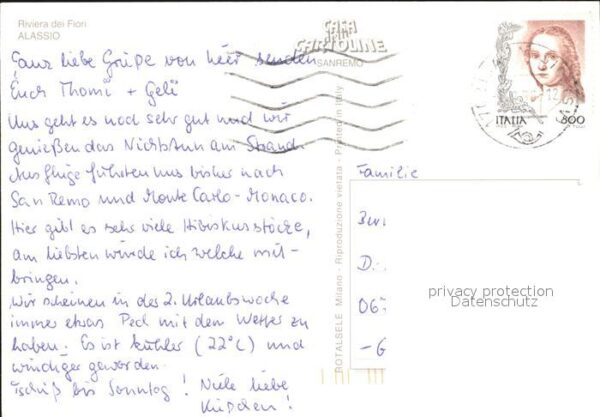 Riviera dei Fiori
ALASSIO
Ganz liebe Grüße von hier senden
Euch Thomi + Geli
Uns geht es noch sehr gut und wir
genießen das Nichtstun am Strand.
Ausflüge führten uns bisher nach
San Remo und Monte Carlo-Monaco.
Hier gibt es sehr viele Hibiskusstöcke,
am liebsten würde ich welche mit-
bringen.
Wir scheinen in der 2. Urlaubswoche
immer etwas Pech mit dem Wetter zu
haben. Es ist kühler (22°C) und
windiger geworden.
Tschüß bis Sonntag! Viele liebe
Küßchen!
CASA
CARTOLINE
SANREMO
ROTALSELE Milano - Riproduzione vietata - Printed in Italy
ITALIA
800
Familie
D
06
-G
privacy protection
Datenschutz